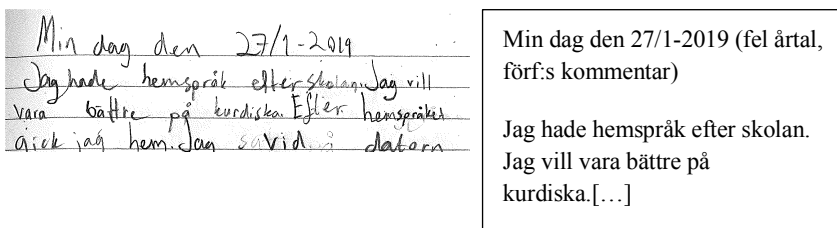 Min dag den 27/1-2019
Jag hade hemspråk efter skolan. Jag vill
vara bättre på kurdiska. Efter hemspråket
gick jag hem. Jag vid datorn
Min dag den 27/1-2019 (fel årtal,
förf:s kommentar)
Jag hade hemspråk efter skolan.
Jag vill vara bättre på
kurdiska.[…]